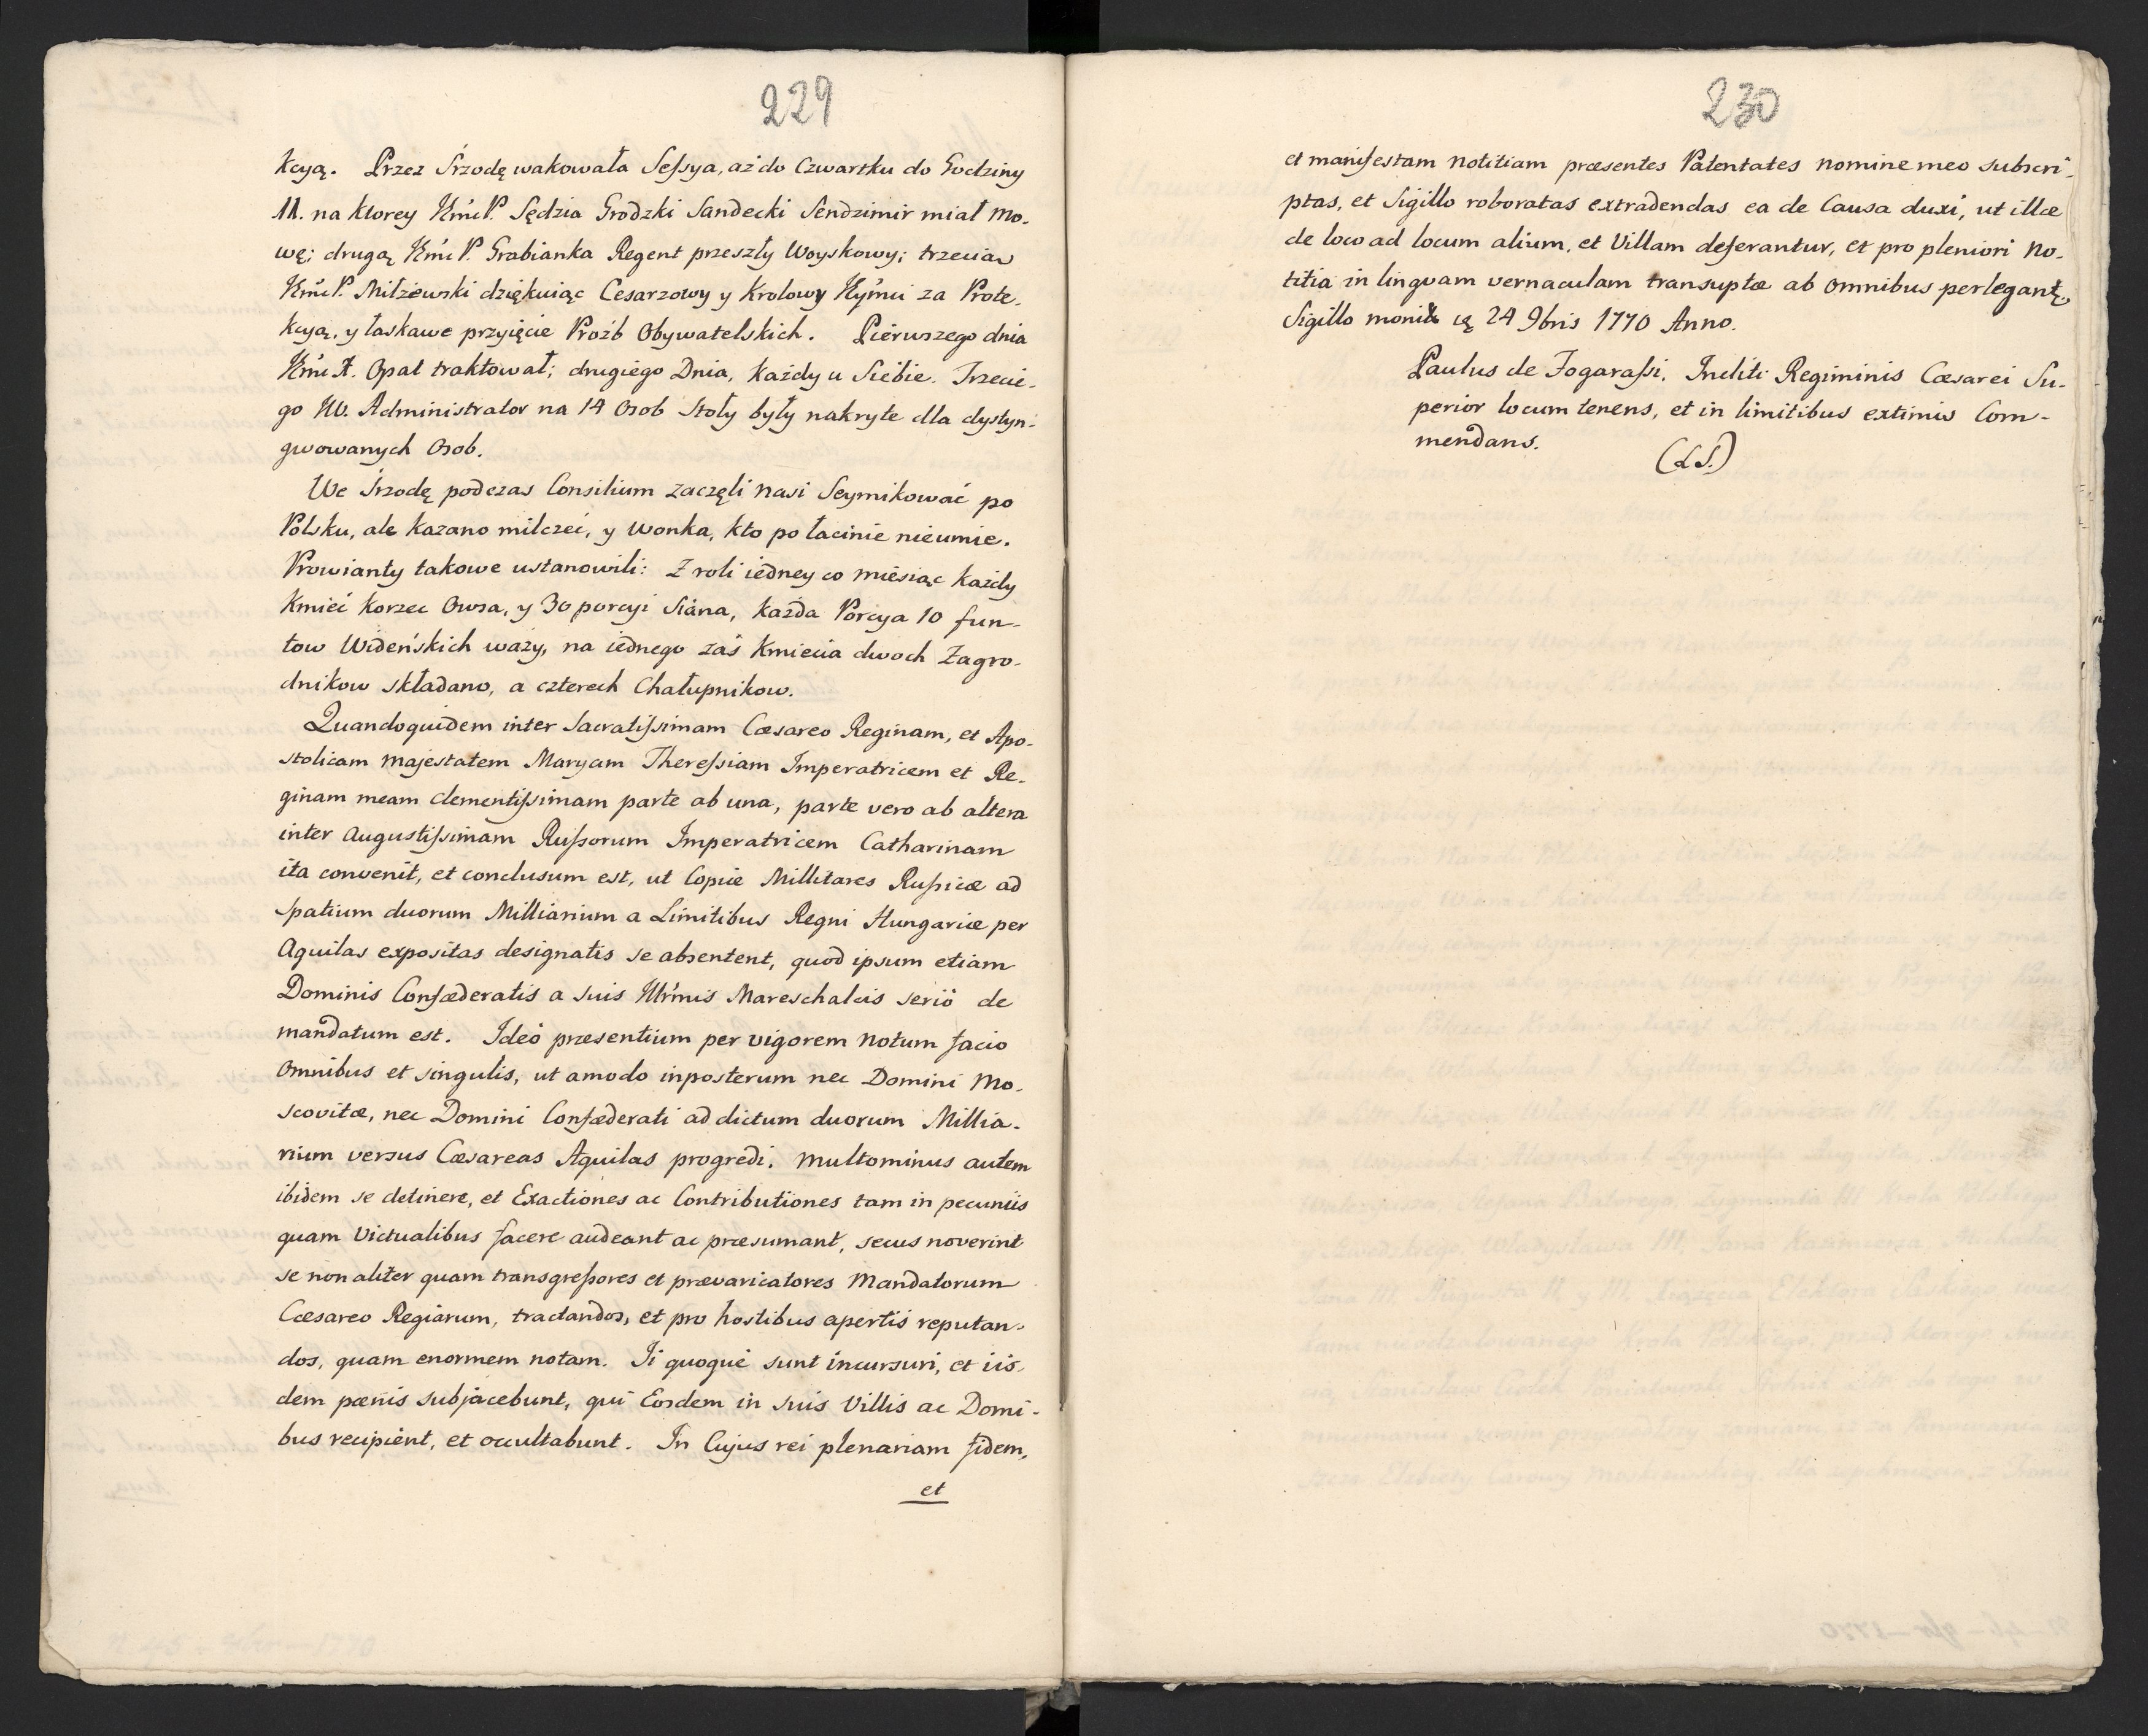 229
kcyą. Przez Srzodę wakowała Seſsya, aż do Czwartku do Godziny
11. na ktorey JEmć P. Sędzia Grodzki Sandecki Sendzimir miał Mo-
wę; drugą P. Grabianka Regent przeszły Woyskowy; trzecią
P. Miłżewski dziękuiąc Cesarzowy y Krolowy za Prote-
kcyą, y łaskawe przyięcie Proźb Obywatelskich. Pierwszego dnia
Opat traktował; drugiego Dnia, każdy u Siebie. Trzecie-
go JW. Administrator na 14 Osob stoły były nakryte dla dystyn-
gwowanych Osob.
We Srzodę podczas Consilium zaczęli nasi Seymikować po
Polsku, ale kazano milczeć, y wonka, kto po łacinie nieumie.
Prowianty takowe ustanowili: Z roli iedney co miesiąc każdy
Kmieć korzec Owsa, y 30 porcyi Siana, każda Porcya 10 fun-
tow Wideńskich waży, na iednego zaś Kmiecia dwoch Zagro-
dnikow składano, a czterech Chałupnikow.
Quandoquidem inter Sacratiſsimam Cæsareo Reginam, et Apo-
stolicam majestatem Maryam Thereſsiam Imperatricem et Re-
ginam meam clementiſsimam parte ab una, parte vero ab altera
inter Augustiſsimam Ruſsorum Imperatricem Catharinam
ita convenit, et conclusum est, ut Copiæ Millitares Ruſsicæ ad
spatium duorum Milliarium a Limitibus Regni Hungariæ per
Aquilas expositas designatis se absentent, quod ipsum etiam
Dominis Confæderatis a suis Illrmis Mareschalcis seriö de
mandatum est. Ideò præsentium per vigorem notum facio
Omnibus et singulis, ut amodo inposterum nec Domini Mo-
scovitæ, nec Domini Confæderati ad dictum duorum Millia-
rium versus Cæsareas Aquilas progredi, multominus autem
ibidem se detinere, et Exactiones ac Contributiones tam in pecuniis
quam Victualibus facere audeant ac præsumant, secus noverint
se non aliter quam transgreſsores et prævaricatores Mandatorum
Cæsareo Regiarum, tractandos, et pro hostibus apertis reputan-
dos, quam enormem notam. Ii quoque sunt incursuri, et iis-
dem pænis subjacebunt, qui Eosdem in suis Villis ac Domi-
bus recipient, et occultabunt. In Cujus rei plenariam fidem,
et
230
et manifestam notitiam præsentes Patentates nomine meo subscri-
ptas, et Sigillo roboratas extradendas ea de Causa duxi, ut illæ
de loco ad locum alium, et Villam deferantur, et pro pleniori no-
titia in lingvam vernaculam transuptæ ab omnibus perlegantę,
Sigillo 24 9bris 1770 Anno.
Paulus de Fogaraſsi, Incliti Regiminis Cæsarei Su-
perior locum tenens, et in limitibus extimis Com-
mendans.
(LS.)